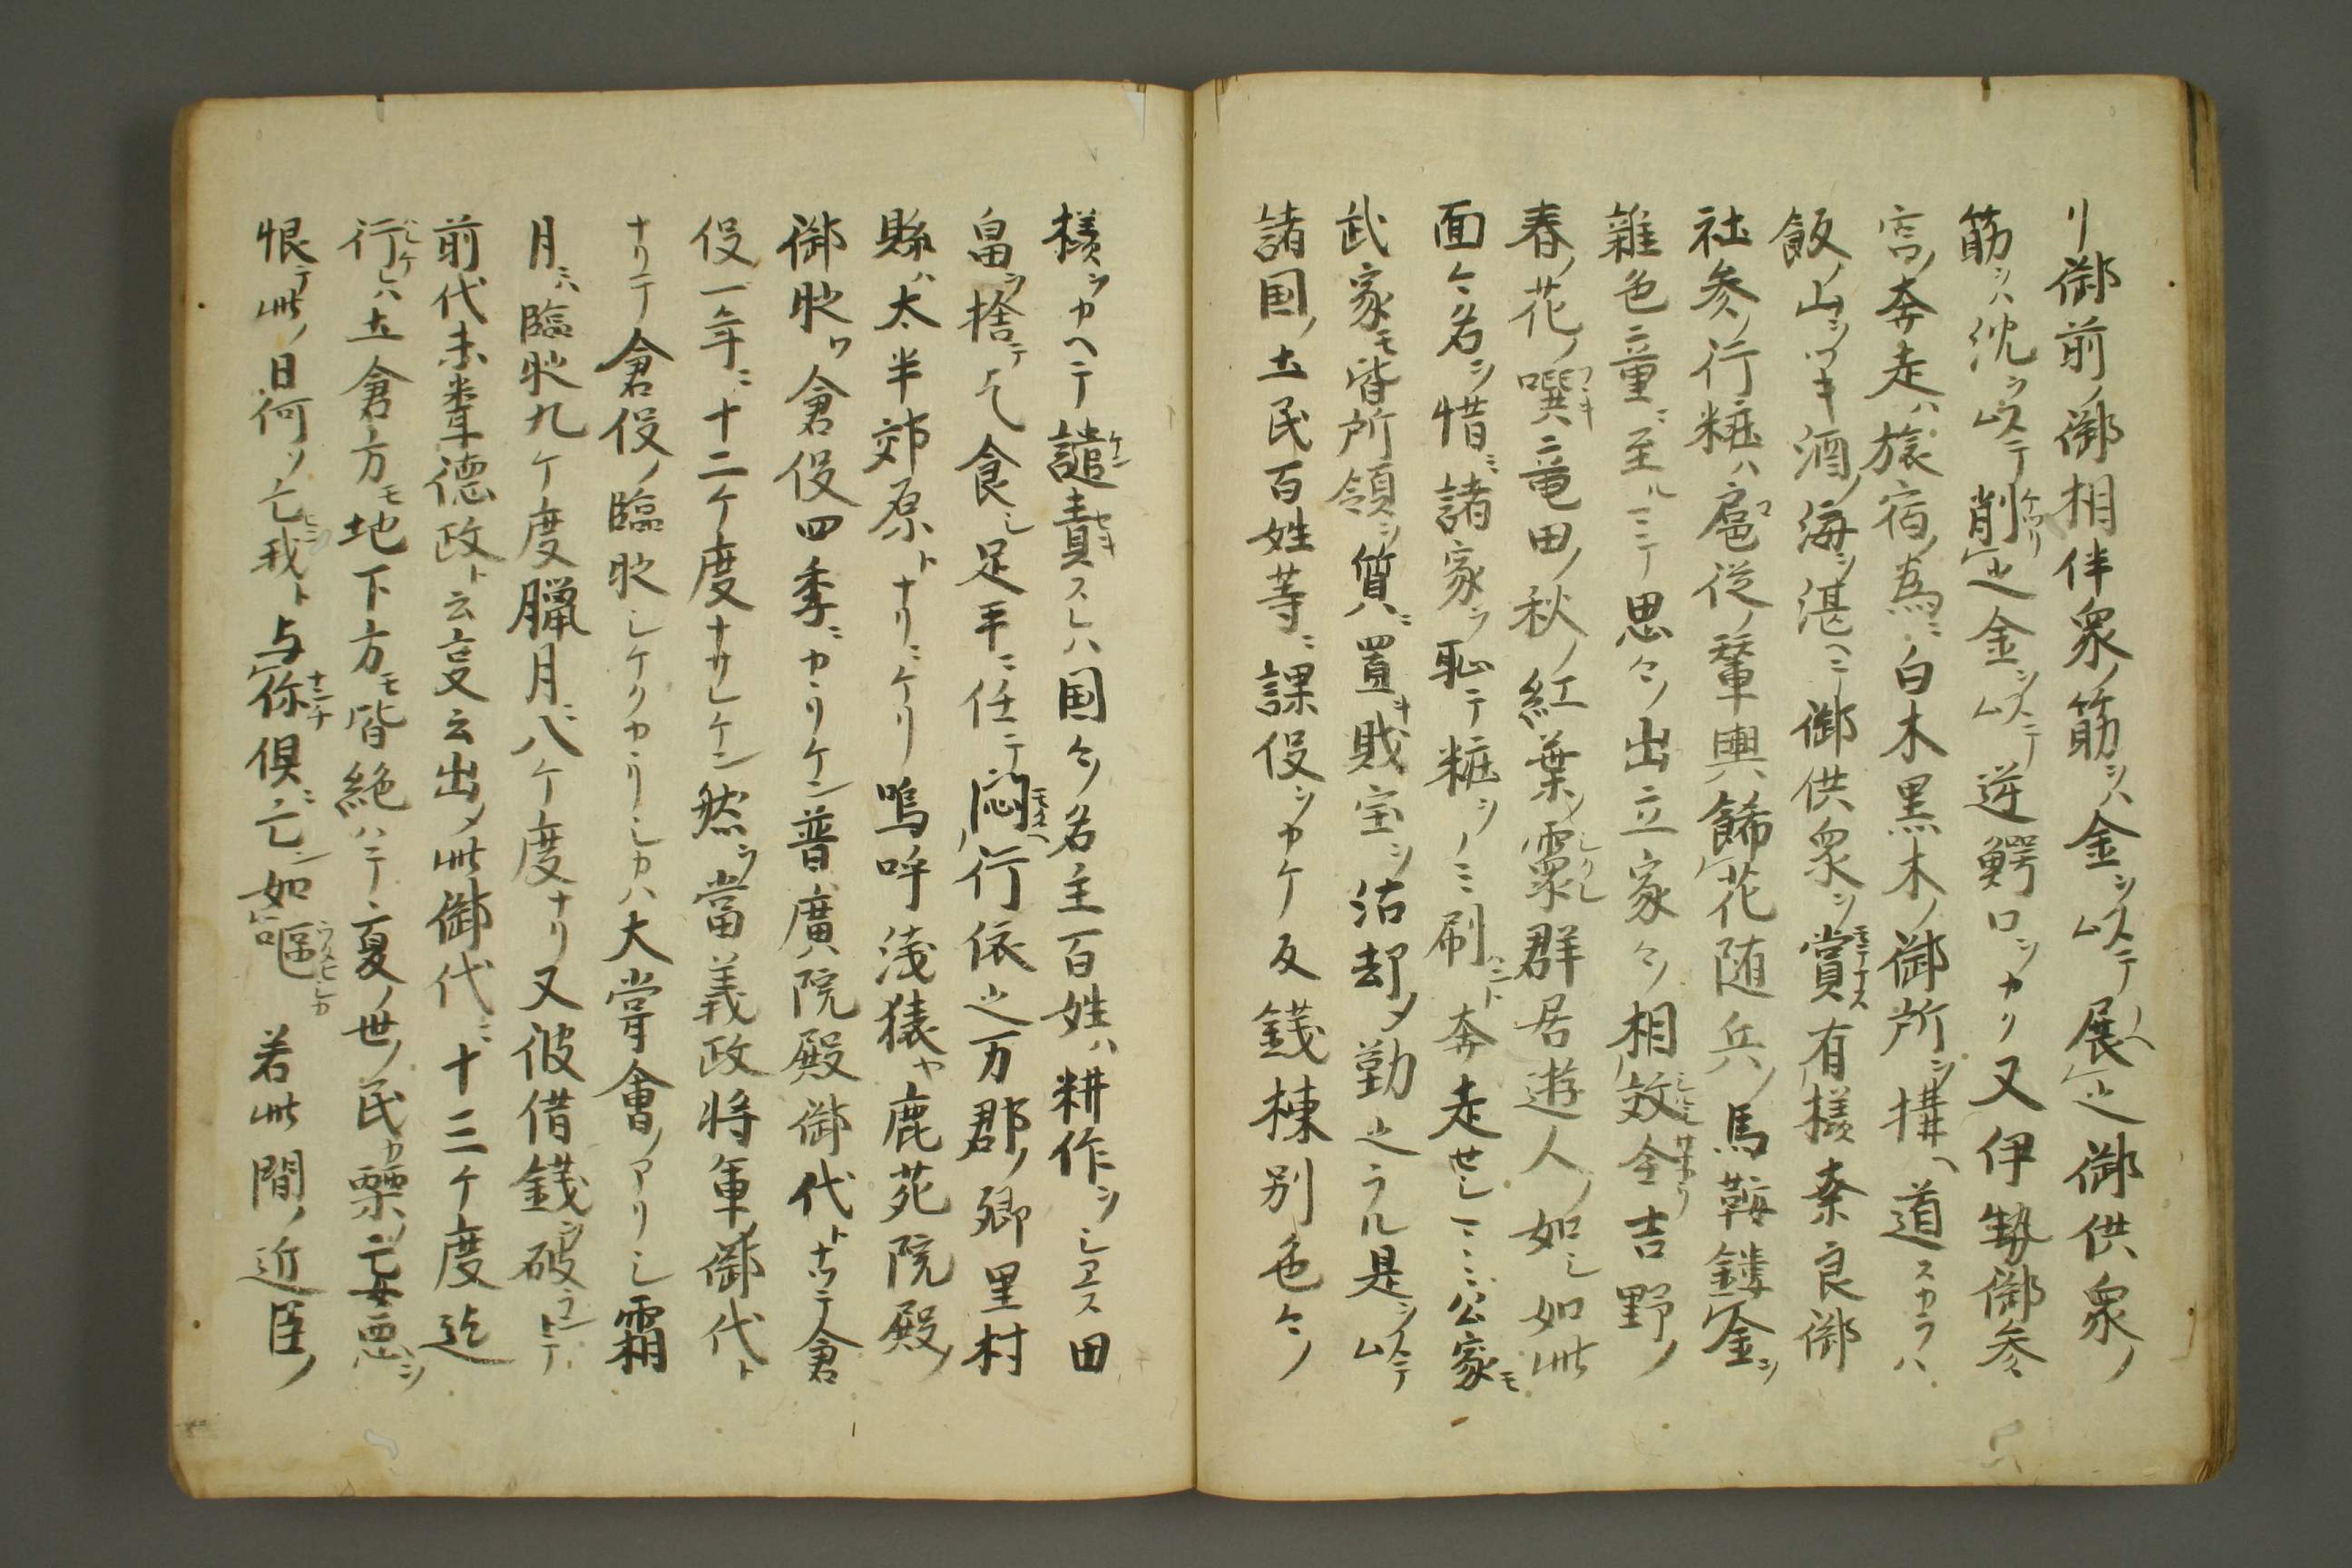 リ御前ノ御相伴衆ノ筋ヲハ金ヲ以テ展之御供衆ノ
筋ヲハ沈ヲ以テ削之金ヲ以テ逆鰐口ヲカリ又伊勢御参
宮ノ奔走ハ旅宿ノ為ニ白木黒木ノ御所ヲ構ヘ道スカラハ
飯ノ山ヲツキ酒ノ海ヲ湛ヘニ御供衆ヲ賞有様奈良御
社参ノ行粧ハ扈従ノ輦輿餝花随兵ノ馬鞍鏤金ヲ
雑色童ニ至ルマテ思々ノ出立家々ノ相効全吉野ノ
春ノ花ノ噀ニ竜田ノ秋ノ紅葉ノ霖群居遊人ノ如シ如此
面々名ヲ惜ミ諸家ヲ恥テ粧ヲノミ刷ハント奔走セシマヽ公家モ
武家モ皆所領ヲ質ニ置キ賎宝ヲ沽却メ勤之ラル是ヲ以テ
諸国ノ土民百姓等ニ課役ヲカケ反銭棟別色々ノ
様ヲカヘテ譴責スレハ国々ノ名主百姓ハ耕作ヲシエス田
畠ヲ捨テ乞食シ足手ニ任テ悶行依之万郡ノ郷里村
縣ハ太半郊原トナリニケリ嗚呼浅猿ヤ鹿苑院殿ノ
御時ハ倉役四季ニカヽリケン普廣院殿御代トナツテ倉
役一年ニ十二ケ度ナサレケン然ヲ當義政将軍ノ御代ト
ナリテ倉役ノ臨時シケクカヽリシカハ大甞會ノアリシ霜
月ニハ臨時九ケ度臘月ニ八ケ度ナリ又彼借銭ヲ破ラントテ
前代未聞徳政ト云支云出メ此御代ニ十三ケ度迄
行ハレケレハ土倉方モ地下方モ皆絶ハテヽ夏ノ世ノ民カ櫽ノ亡妄悪ヲ
恨テ此ノ日何ソ亡我ト与你倶ニ亡ント如謳若此間ノ近臣ノ